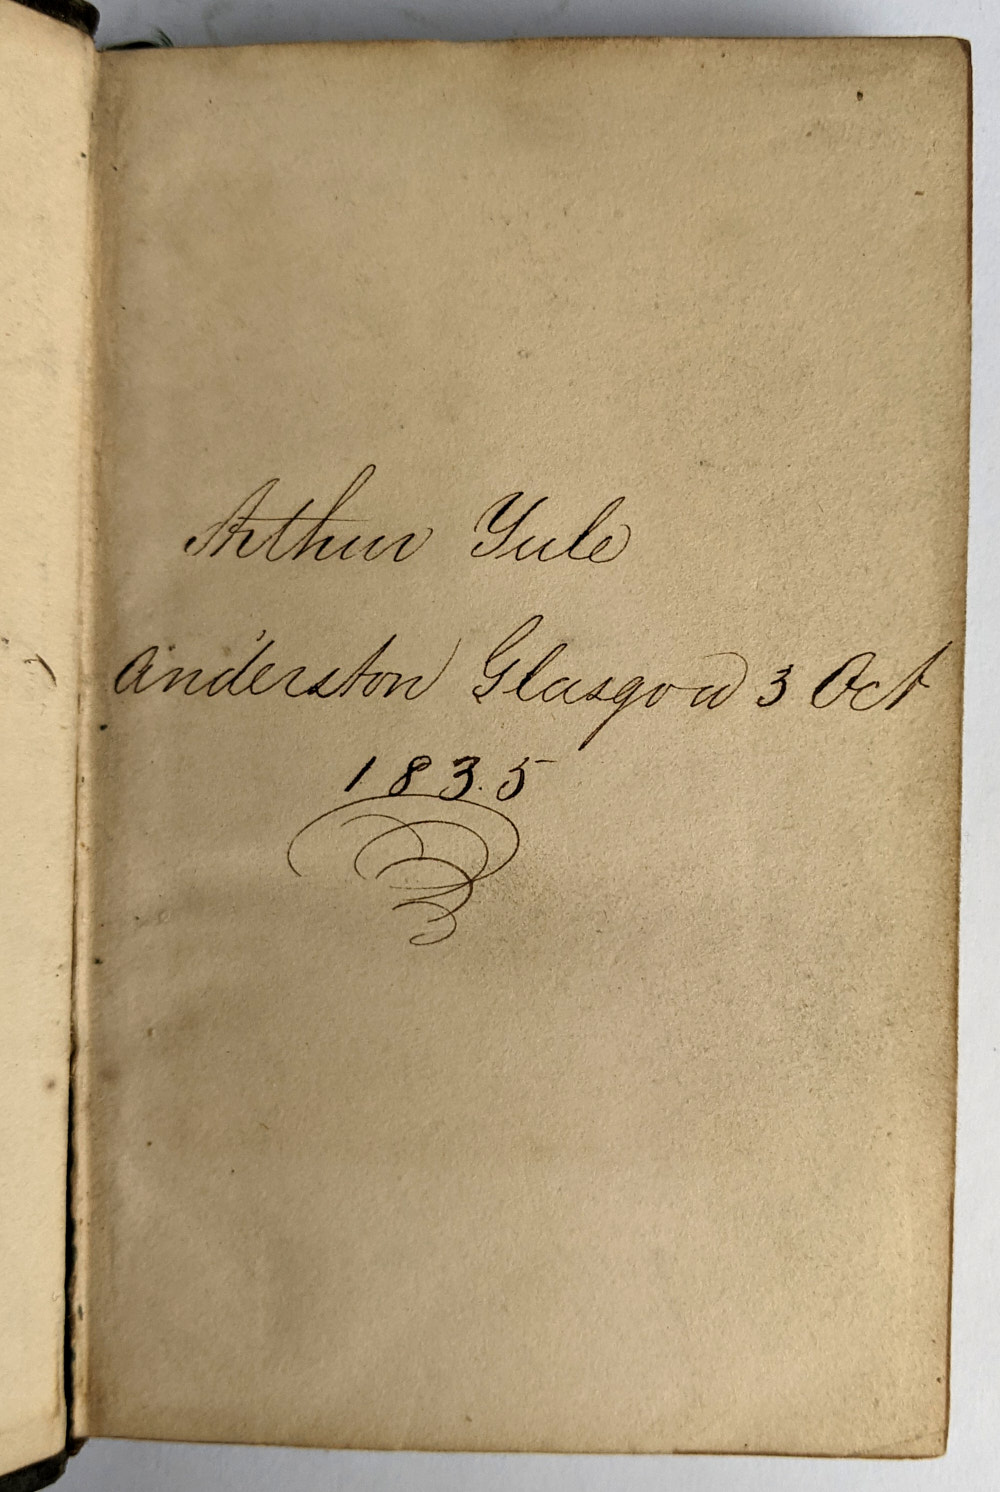 Arthur Yule
Anderston Glasgow 3 Oct
1835